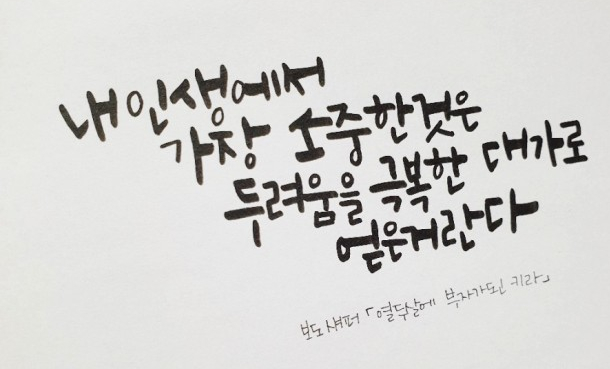 내 인생에서
가장 소중한것은
두려움을 극복한 대가로
얻은거란다
보도 섀퍼 「열두살에 부자가된 키라」